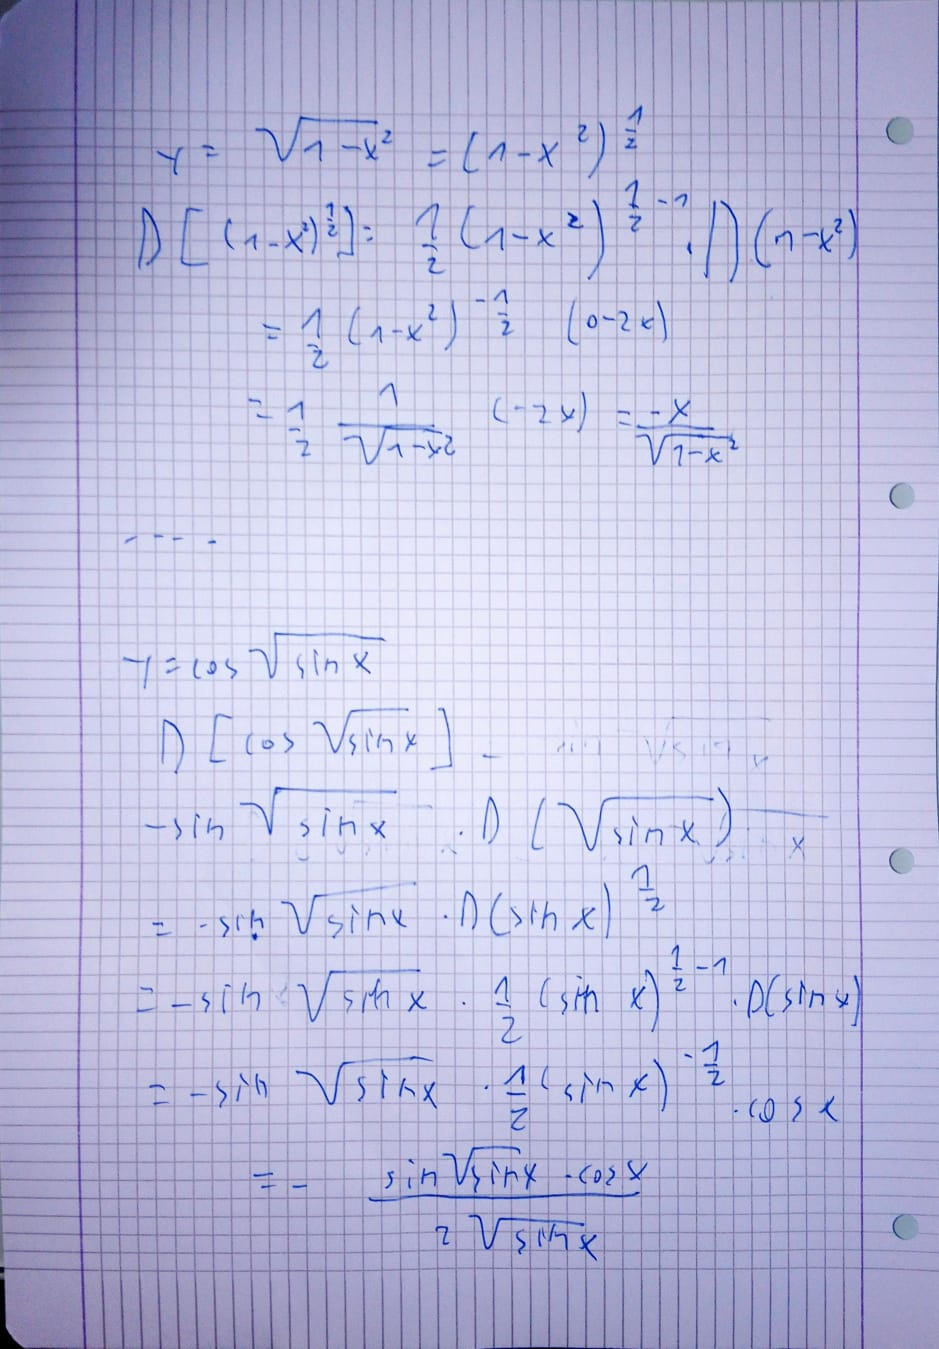 y = √(1-x²) = (1-x²)^(1/2)
D[(1-x²)^(1/2)] = 1/2 (1-x²)^(1/2 -1) · D(1-x²)
= 1/2 (1-x²)^(-1/2) (0-2x)
= 1/2 1/√(1-x²) (-2x) = -x/√(1-x²)
- - - -
y = cos √(sin x)
D [cos √(sin x)] -
-sin √(sin x) · D (√(sin x))
= -sin √(sin x) · D(sin x)^(1/2)
= -sin √(sin x) · 1/2 (sin x)^(1/2 -1) · D(sin x)
= -sin √(sin x) · 1/2 (sin x)^(-1/2) · cos x
= - (sin √(sin x) · cos x)/(2 √(sin x))